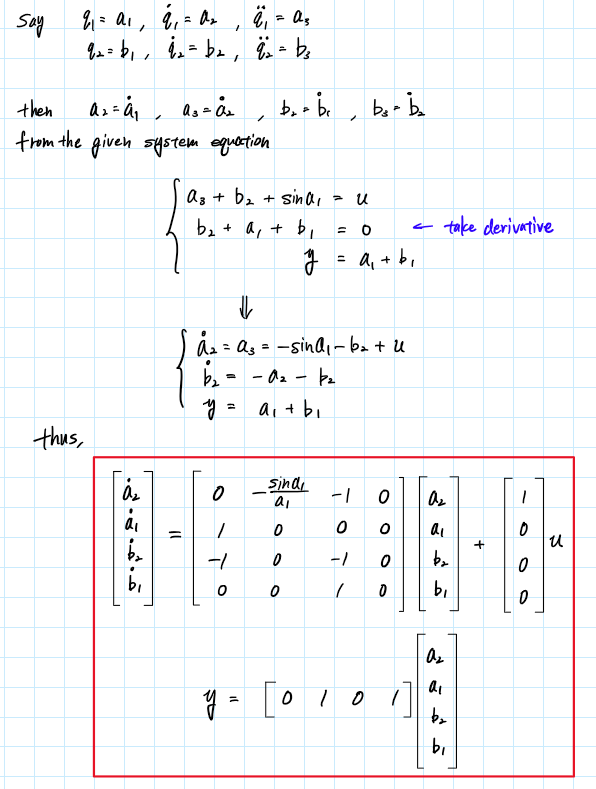 Say q₁ = a₁ , q̇₁ = a₂ , q̈₁ = a₃
q₂ = b₁ , q̇₂ = b₂ , q̈₂ = b₃
then a₂ = ȧ₁ , a₃ = ȧ₂ , b₂ = ḃ₁ , b₃ = ḃ₂
from the given system equation
a₃ + b₂ + sina₁ = u
b₂ + a₁ + b₁ = 0 ← take derivative
y = a₁ + b₁
⇓
ȧ₂ = a₃ = -sina₁ - b₂ + u
ḃ₂ = -a₂ - b₂
y = a₁ + b₁
thus,
[ȧ₂ ; ȧ₁ ; ḃ₂ ; ḃ₁] = [0 -sina₁/a₁ -1 0 ; 1 0 0 0 ; -1 0 -1 0 ; 0 0 1 0] [a₂ ; a₁ ; b₂ ; b₁] + [1 ; 0 ; 0 ; 0] u
y = [0 1 0 1] [a₂ ; a₁ ; b₂ ; b₁]